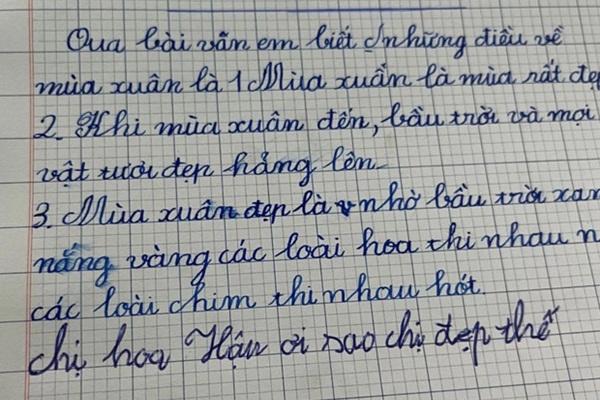 Qua bài văn em biết những điều về
mùa xuân là 1 Mùa xuân là mùa rất đẹ
2. Khi mùa xuân đến, bầu trời và mọi
vật tươi đẹp hẳng lên
3. Mùa xuân đẹp là nhờ bầu trời xan
nắng vàng các loài hoa thi nhau n
các loài chim thi nhau hót.
chị hoa Hậu ơi sao chị đẹp thế